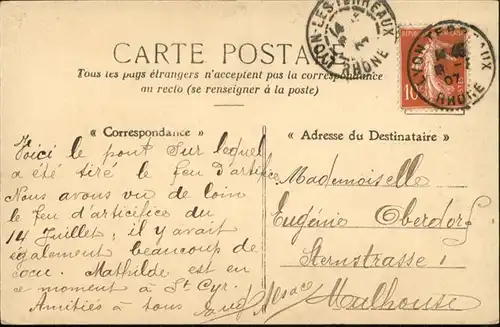 CARTE POSTALE
Tous les pays étrangers n'acceptent pas la correspondance
au recto (se renseigner à la poste)
LYON-LES-TERREAUX
RHONE
LYON-TERREAUX
07
RHONE
10
« Correspondance »
Voici le pont sur lequel
a été tiré le feu d'artifice
Nous avons vu de loin
le feu d'articifice du
14 Juillet, il y avait
également beaucoup de
Mathilde est en
ce moment à St Cyr.
Amitiés à tous
« Adresse du Destinataire »
Mademoiselle
Eugénie Oberdorf
Sternstrasse 1
Malhouse
Alsac